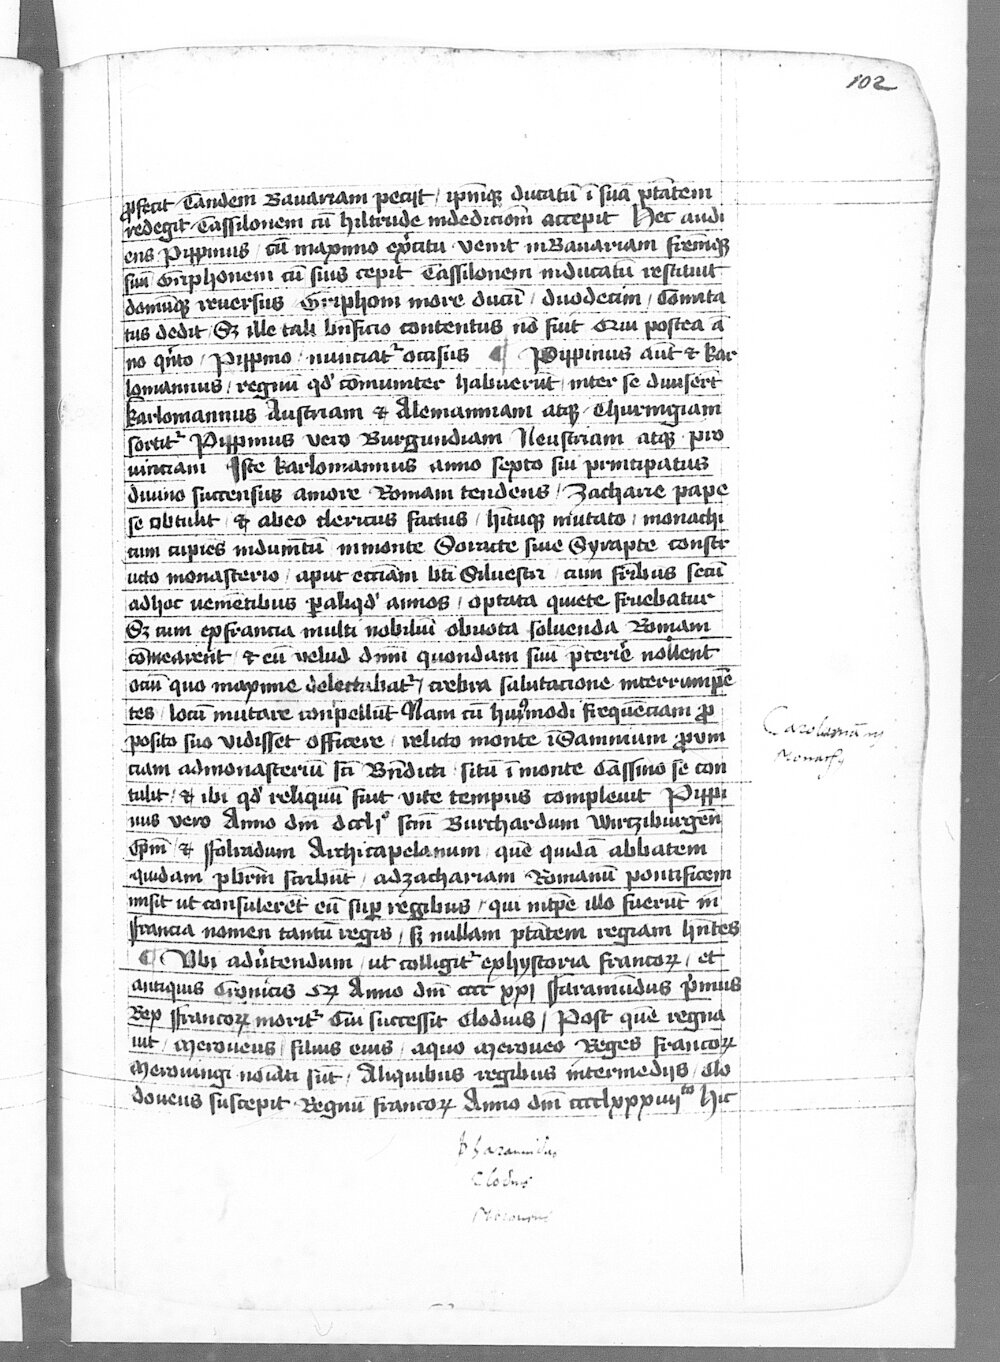 102
ꝓfecit Tandem Bauariam pecijt / ipm̄qꝫ ducatū ī suā ptātem
redegit Tassilonem cū hiltrude indedicionē accepit Hec audi
ens Pippinus / cū maximo exercitu venit in Bauariam frem̄qꝫ
suū Griphonem cū suis cepit Tassilonem inducatū restituit
domūqꝫ reuersus Griphoni more ducū / duodecim / Comita
tus dedit / Sꝫ ille tali bn̄ficio contentus nō fuit Qui postea ā
no qn̄to / Pippino / nunciatr̄ occisus ¶ Pippinus aūt et kar
lomannus / regnū qd' cōmuniter habuerūt / inter se diuisert̄
karlomannus Austriam et Alemanniam atqꝫ Thuringiam
sortitr̄ Pippinus vero Burgundiam Neustriam atqꝫ pro
uinciam Iste karlomannus anno septo sui principatus
diuino succensus amore Romam tendens / Zacharie pape
se obtulit / et abeo clericus factus / hītuqꝫ mutato / monachi
cum cupiens indumtū inmonte Soracte siue Syrapte constr
ucto monasterio / aput ecciam bti Siluestri / cum frībus secū
adhoc uenientibus ꝑ aliqd' annos / optata quiete fruebatur
Sꝫ cum exfrancia multi nobiliū obuota soluenda Romam
cōmearent̄ / et eū velud dn̄m quondam suū p̄terire nollent
ociū quo maxime delectabatr̄ / crebra salutacione interrumpē
tes / locū mutare conpellūt Nam cū huiꝰmodi frequenciam ꝓ
posito suo vidisset officere / relicto monte ī Samnium ꝓuin
ciam admonasteriū sci Bn̄dicti situ ī monte Cassino se con
tulit / et ibi qd' reliquum fuit vite tempus compleuit Pippi
nus vero Anno dnī dccljº scm̄ Burchardum Wirtziburgen̄
Epm̄ et ffolradum Archicapelanum / quē quidā abbatem
quidam pbrm̄ scribūt / adzachariam Romanū pontificem
misit ut consulerēt eū sup regibus / qui intpe illo fuerūt in
francia nomen tantū regis / sꝫ nullam ptātem regiam hn̄tes
¶ Vbi aduertendum / ut colligitr̄ exhystoria francoꝝ / et
antiquis Cronicis Anno dnī cccc xxj ffaramūdus p̄mus
Rex ffrancoꝝ moritr̄ Cui successit Clodius / Post quē regna
uit / Meroueus / filius eius / aquo meroueo Reges francoꝝ
Merouingi noiati sūt / Aliquibus regibus intermedijs / Clo
doueus suscepit Regnū francoꝝ Anno dnī cccclxxxiiijto Hic
Carolomānꝰ
Monachꝰ
Pharamūdus
Clodius
Meroueus